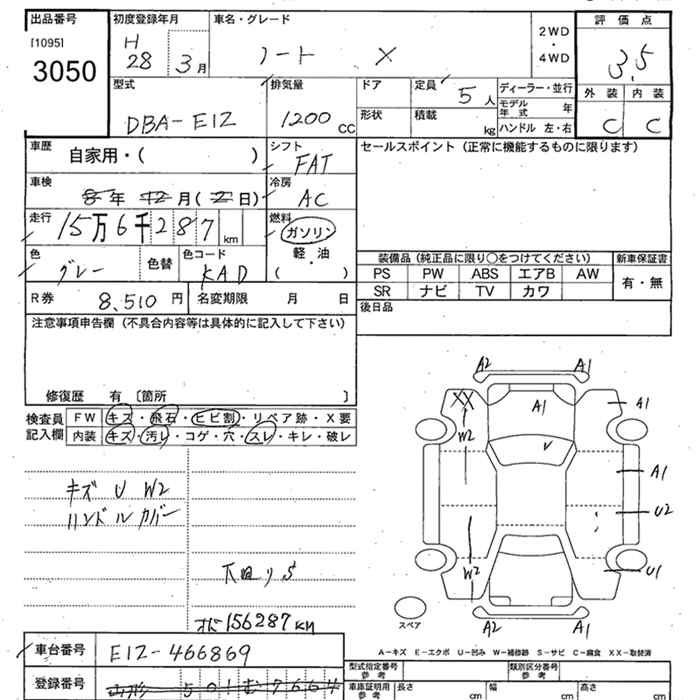 出品番号
[1095]
3050
初度登録年月
H
28 3月
車名・グレード
ノート X
2WD
・
4WD
評価点
3.5
外装 内装
C C
型式
DBA-E12
排気量
1200 CC
ドア
形状
定員
5人
積載
kg
ディーラー・並行
モデル年式 年
ハンドル 左・右
車歴
自家用・( )
シフト
FAT
セールスポイント (正常に機能するものに限ります)
車検
8年 12月 (2日)
冷房
AC
走行
15万6千287km
燃料
ガソリン
軽・油
( )
色
グレー
色替
色コード
KAD
装備品 (純正品に限り○をつけてください)
新車保証書
PS PW ABS エアB AW
SR ナビ TV カワ
有・無
R券 8,510円
名変期限 月 日
後日品
注意事項申告欄 (不具合内容等は具体的に記入して下さい)
修復歴 有 〔箇所 〕
検査員
記入欄
FW キズ・飛石・ヒビ割・リペア跡・X要
内装 キズ・汚レ・コゲ・穴・スレ・キレ・破レ
キズ U W2
ハンドルカバー
下廻リS
オド156287km
A2 A1
XX A1 A1
W2
V
A1
U2
W2 U1
A2 A1
スペア
A-キズ E-エクボ U-凹み W-補修跡 S-サビ C-腐食 XX-取替済
車台番号
E12-466869
登録番号
山形 501 む 7664
型式指定番号
参考
類別区分番号
参考
車庫証明用
参考
長さ cm
幅 cm
高さ cm